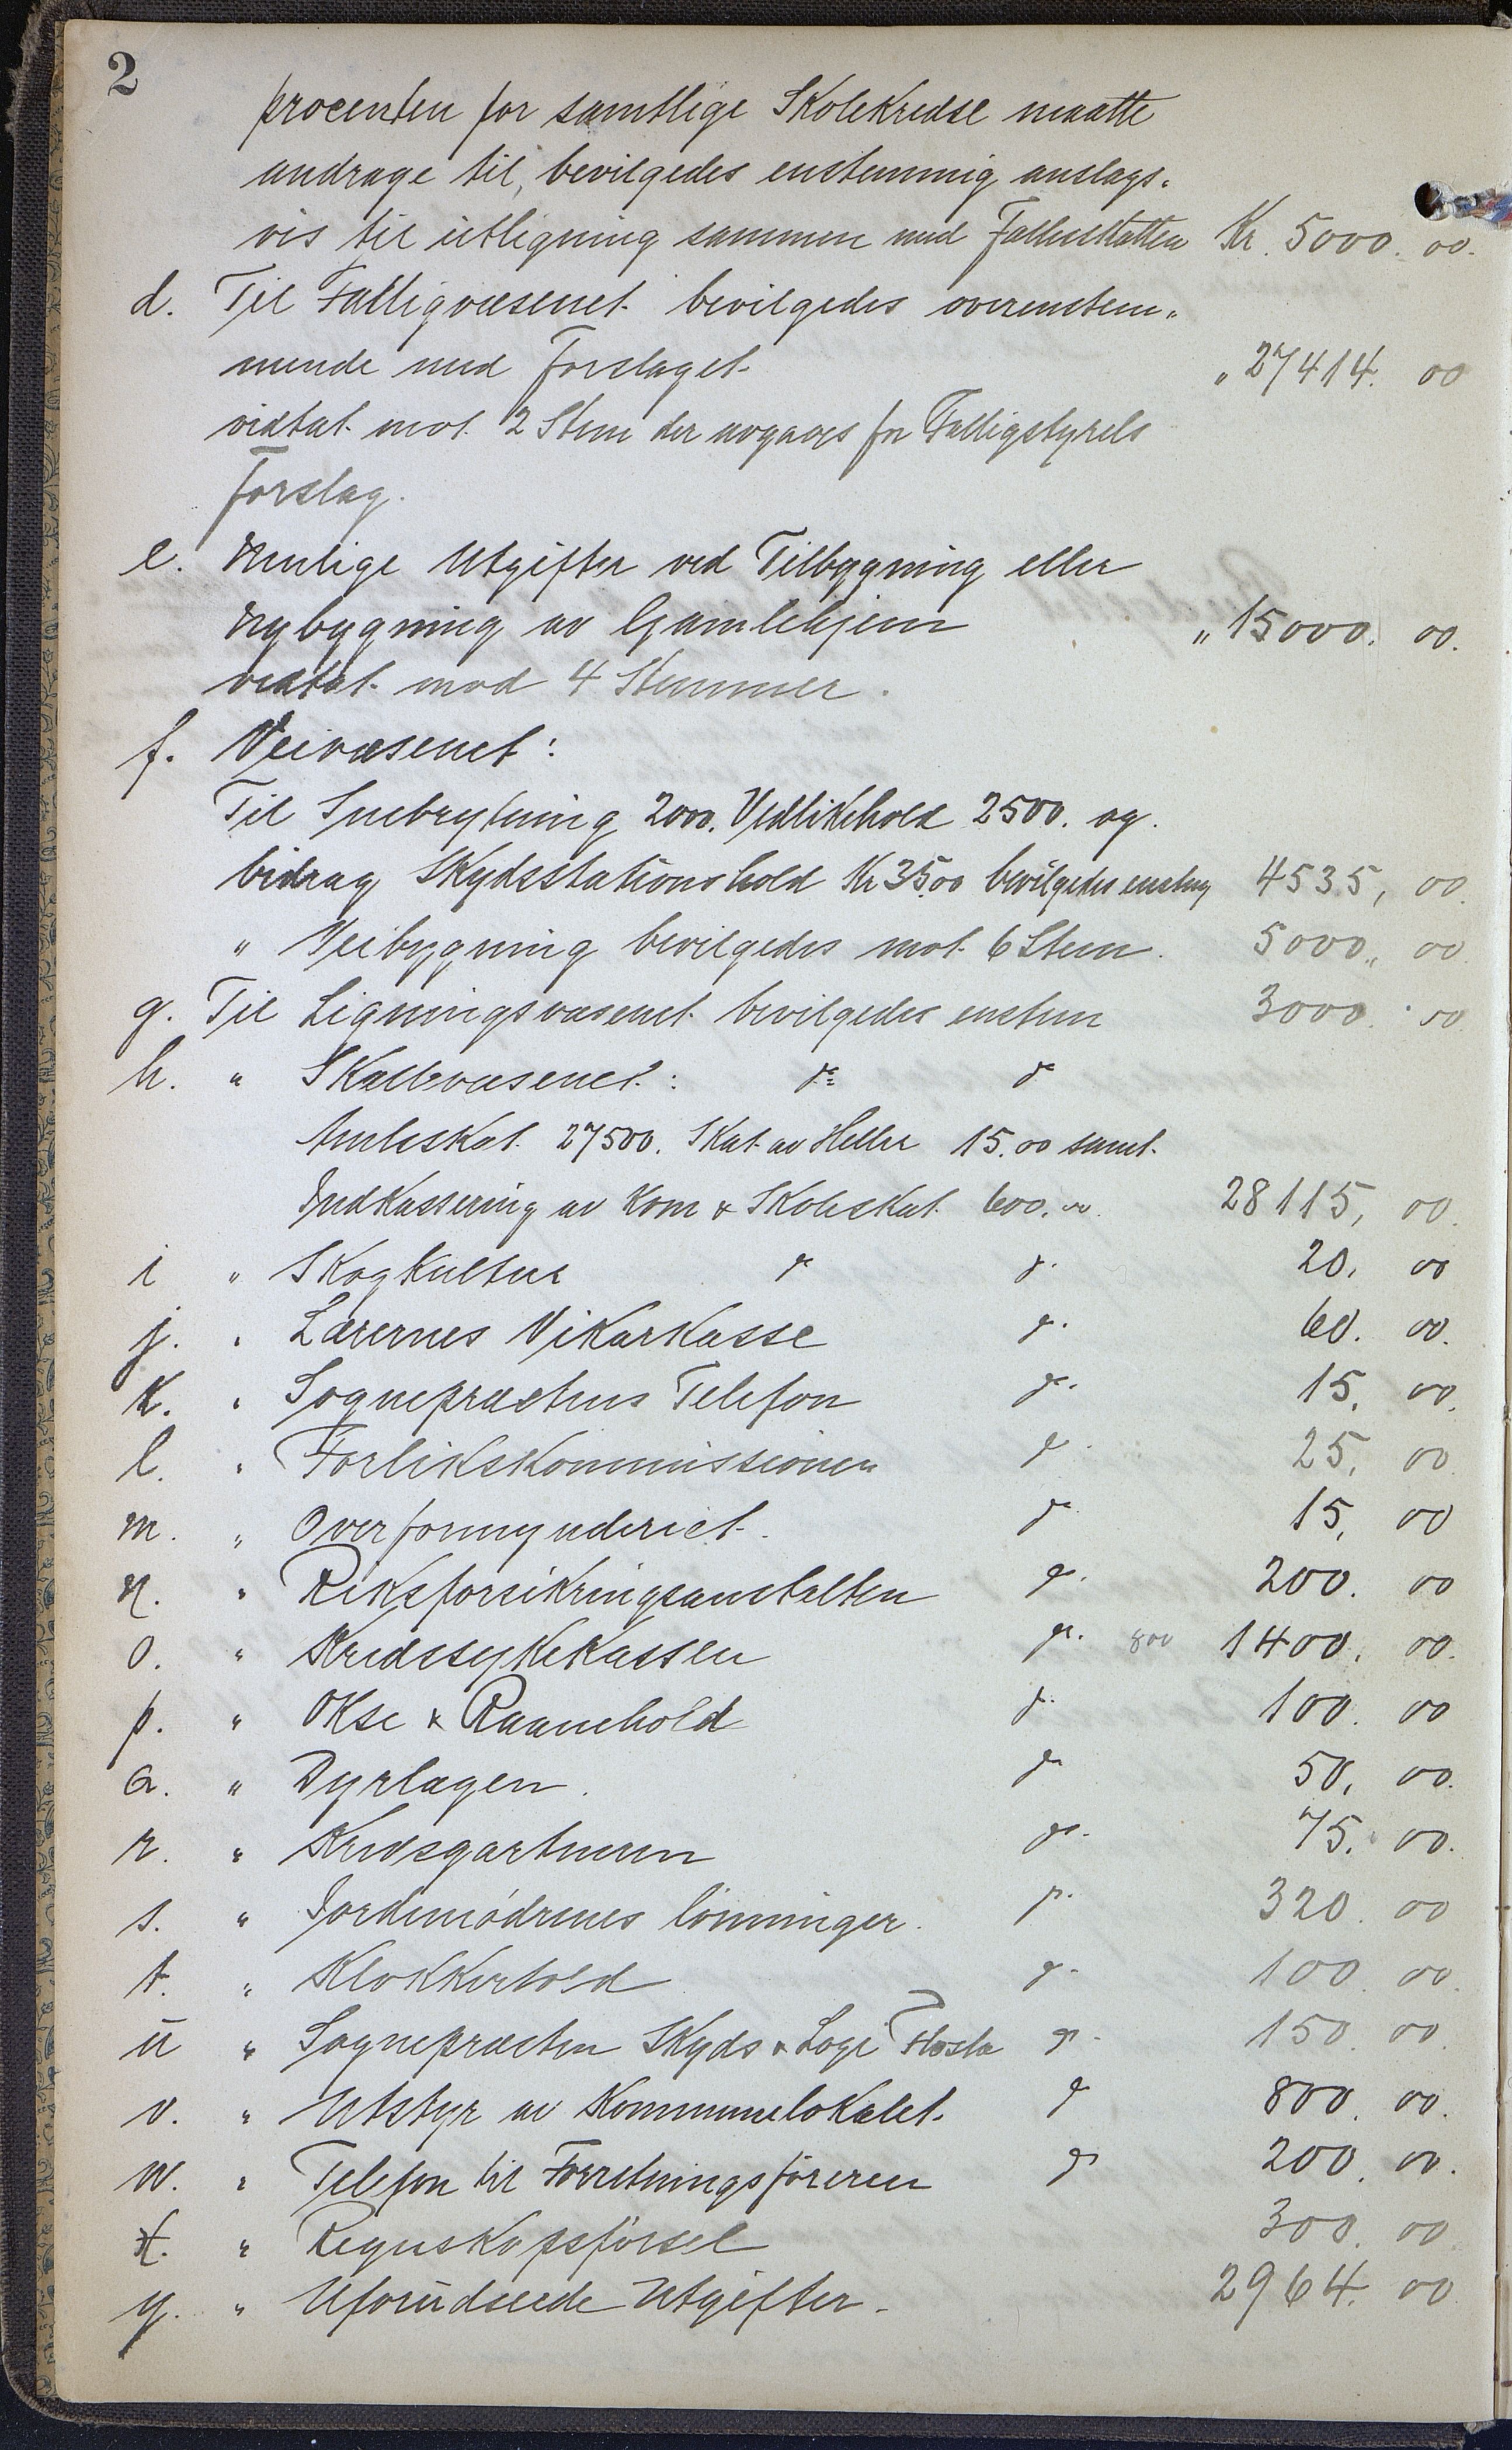 2
procenten for samtlige Skolekredse maatte
andrage til, bevilgedes enstemmig anslags-
vis til utligning sammen med Fællesskatten Kr. 5000. 00.
d. Til Fattigvæsenet bevilgedes overenstem-
mende med Forslaget. " 27414. 00
vidtat mot 2 Stem der avgaves for Fattigstyrels
Forslag.
e. Mulige Utgifter ved Tilbygning eller
Nybygning av Gamlehjem " 15000. 00.
vedtat mod 4 Stemmer.
f. Veivæsenet:
Til Snebrytning 2000. Vedlikehold 2500. og
bidrag Skydsstationshold Kr 35.00 bevilgedes enstem 4535, 00.
" Veibygning bevilgedes mot 6 Stem. 5000,, 00.
g. Til Ligningsvæsenet bevilgedes enstem 3000. 00
h. " Skattevæsenet: do do
Amtsskat 27500. Skat av Heller 15.00 samt
Indkassering av Kom & Skoleskat 600.00. 28115, 00.
i " Skogkultur do do. 20. 00
j. " Lærernes Vikarkasse do. 60. 00.
k. " Sognepræstens Telefon do. 15. 00.
l. " Forlikskommissionen do. 25. 00
m. " Overformynderiet. do 15, 00
n. " Riksforsikringsanstalten do. 200. 00
o. " Kredssykekassen do. 800 1400. 00.
p. " Okse & Raanehold do. 100. 00
q. " Dyrlægen. do 50, 00.
r. " Kredsgartneren do. 75. 00.
s. " Jordemødrenes lønninger. do. 320. 00
t. " Klokkertold do. 100. 00.
u " Sognepræsten Skyds & Logi Flosta do. 150. 00.
v. " Utstyr av Kommunelokalet. do 800. 00.
w. " Telefon til Forretningsføreren do 200. 00.
x. " Regnskapsførsel 300. 00
y. " Uforudseede Utgifter. 2964. 00